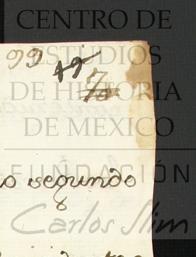 CENTRO DE
ESTUDIOS
DE HISTORIA
DE MEXICO
FUNDACIÓN
Carlos Slim
99 49
o segundo